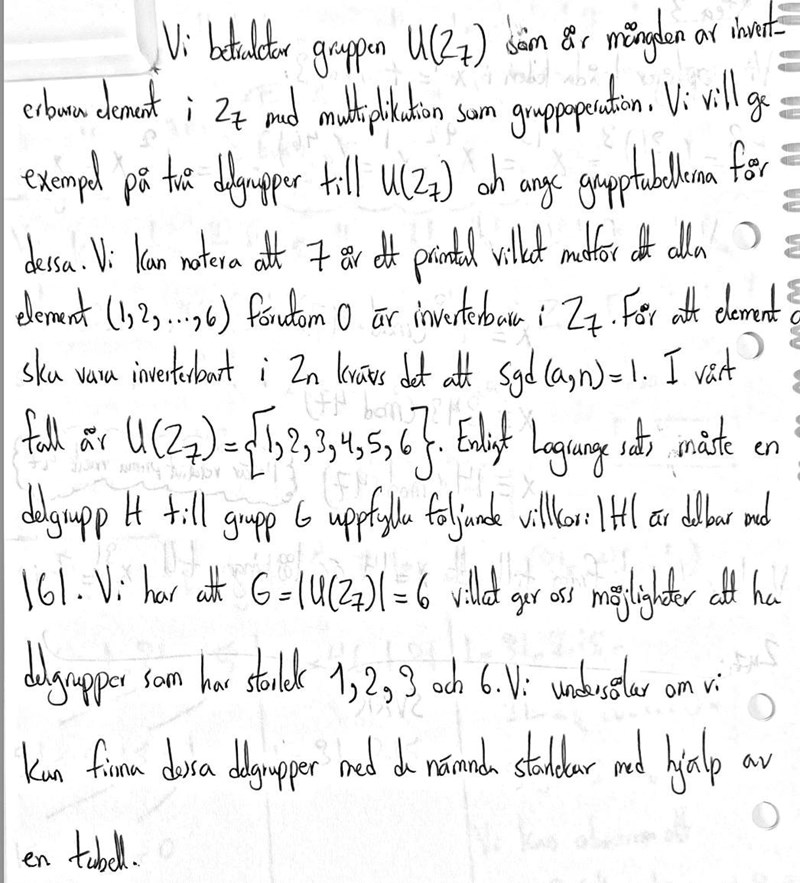 Vi betraktar gruppen U(Z7) som är mängden av invert-
erbara element i Z7 med multiplikation som gruppoperation. Vi vill ge
exempel på två delgrupper till U(Z7) och ange grupptabellerna för
dessa. Vi kan notera att 7 är ett primtal vilket medför att alla
element (1,2,...,6) förutom 0 är inverterbara i Z7. För att element a
ska vara inverterbart i Zn krävs det att sgd(a,n)=1. I vårt
fall är U(Z7)={1,2,3,4,5,6}. Enligt Lagrange sats måste en
delgrupp H till grupp G uppfylla följande villkor: |H| är delbar med
|G|. Vi har att G=|U(Z7)|=6 vilket ger oss möjligheter att ha
delgrupper som har storlek 1,2,3 och 6. Vi undersöker om vi
kan finna dessa delgrupper med de nämnda storlekar med hjälp av
en tabell.